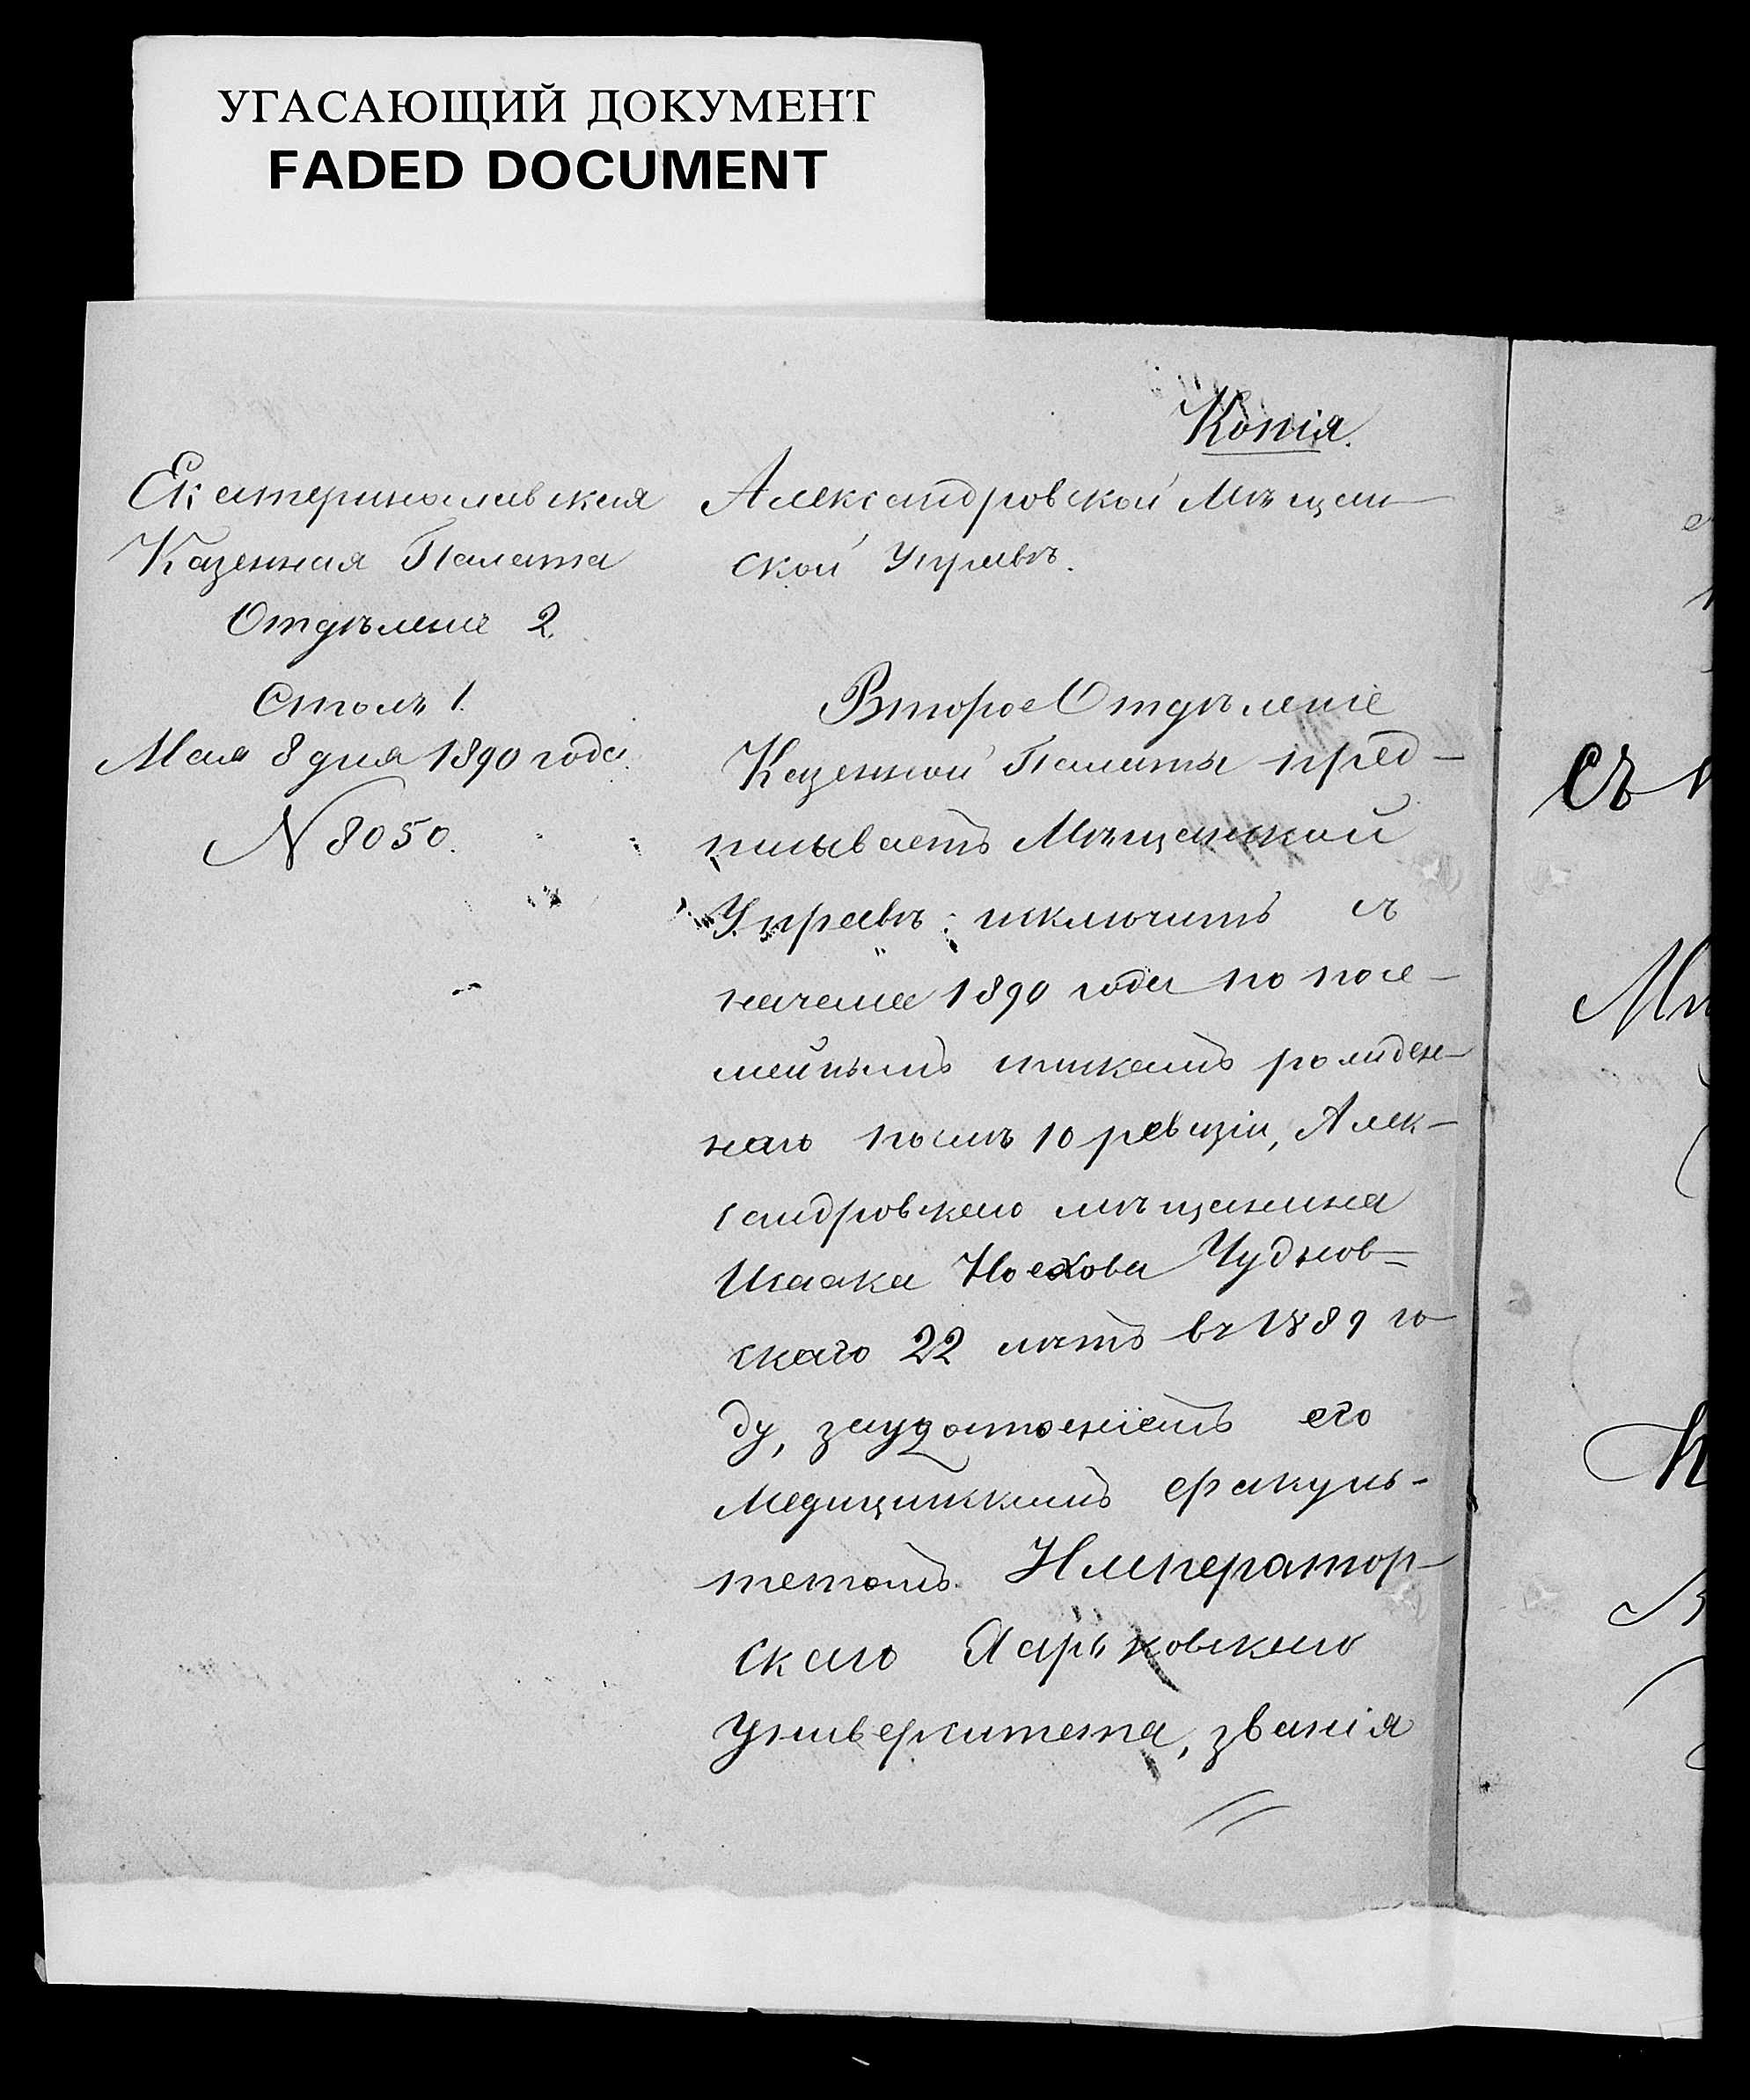 УГАСАЮЩИЙ ДОКУМЕНТ
FADED DOCUMENT
Копія.
Екатеринославская
Казенная Палата
Отдѣленіе 2.
Столъ 1.
Мая 8 дня 1890 года.
N 8050.
Александровской Мѣщан
ской Управѣ.
Второе Отдѣленіе
Казенной Палаты пред-
писываетъ Мѣщанской
Управѣ: исключить съ
начала 1890 года по посе-
мейнымъ спискамъ рожден-
наго послѣ 10 ревизіи, Алек-
сандровскаго мѣщанина
Исаака Ноехова Чуднов-
скаго 22 лѣтъ въ 1889 го-
ду, за удостоеніемъ его
Медицинскимъ факуль-
тетомъ Император-
скаго Харьковскаго
Университета, званія
съ